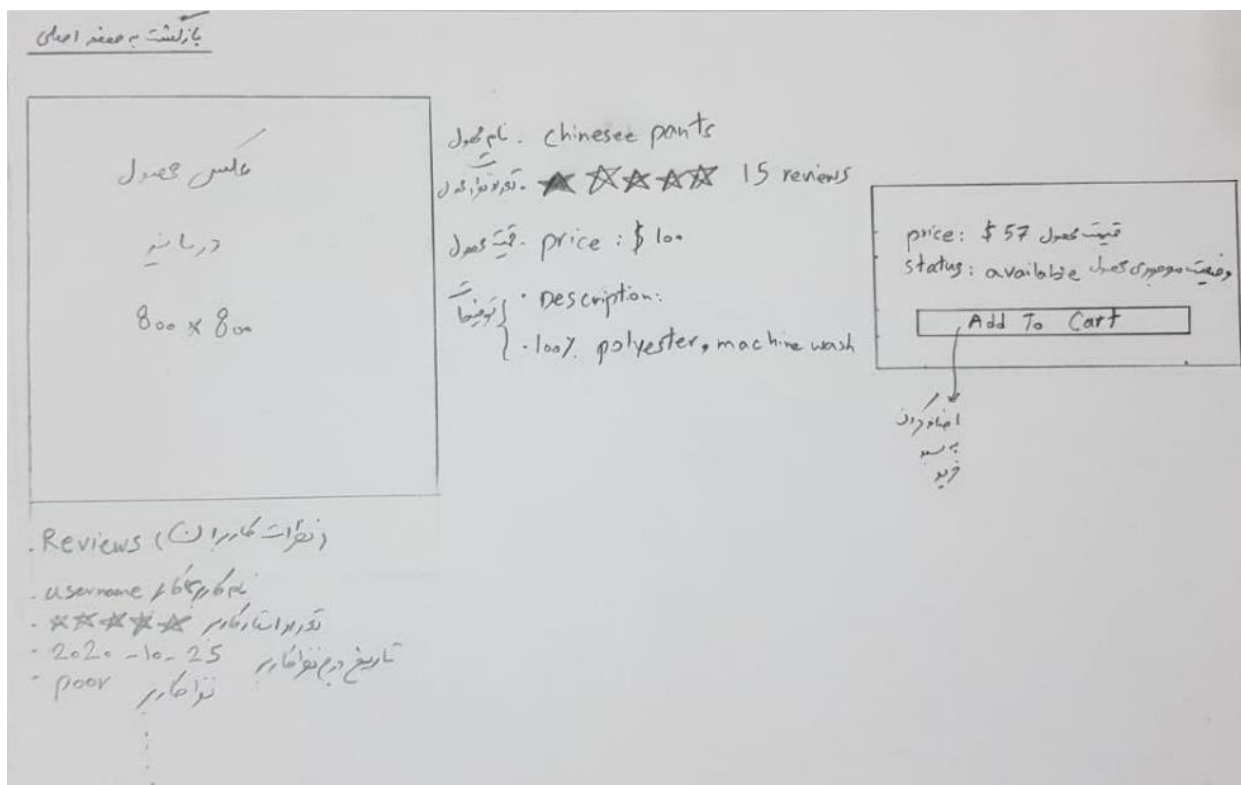 بازگشت به صفحه اصلی
عکس محصول
در سایز
800 x 800
نام محصول . chinesee pants
15 reviews
قیمت محصول - price : $ 100
توضیحات
Description:
100% polyester, machine wash
price: $ 57 قیمت محصول
status: available وضعیت موجودی محصول
Add To Cart
اضافه کردن
به سبد
خرید
Reviews (نظرات کاربران)
username نام کاربری کاربر
تعداد استار کاربر
2020-10-25 تاریخ درج نظر کاربر
poor نظر کاربر